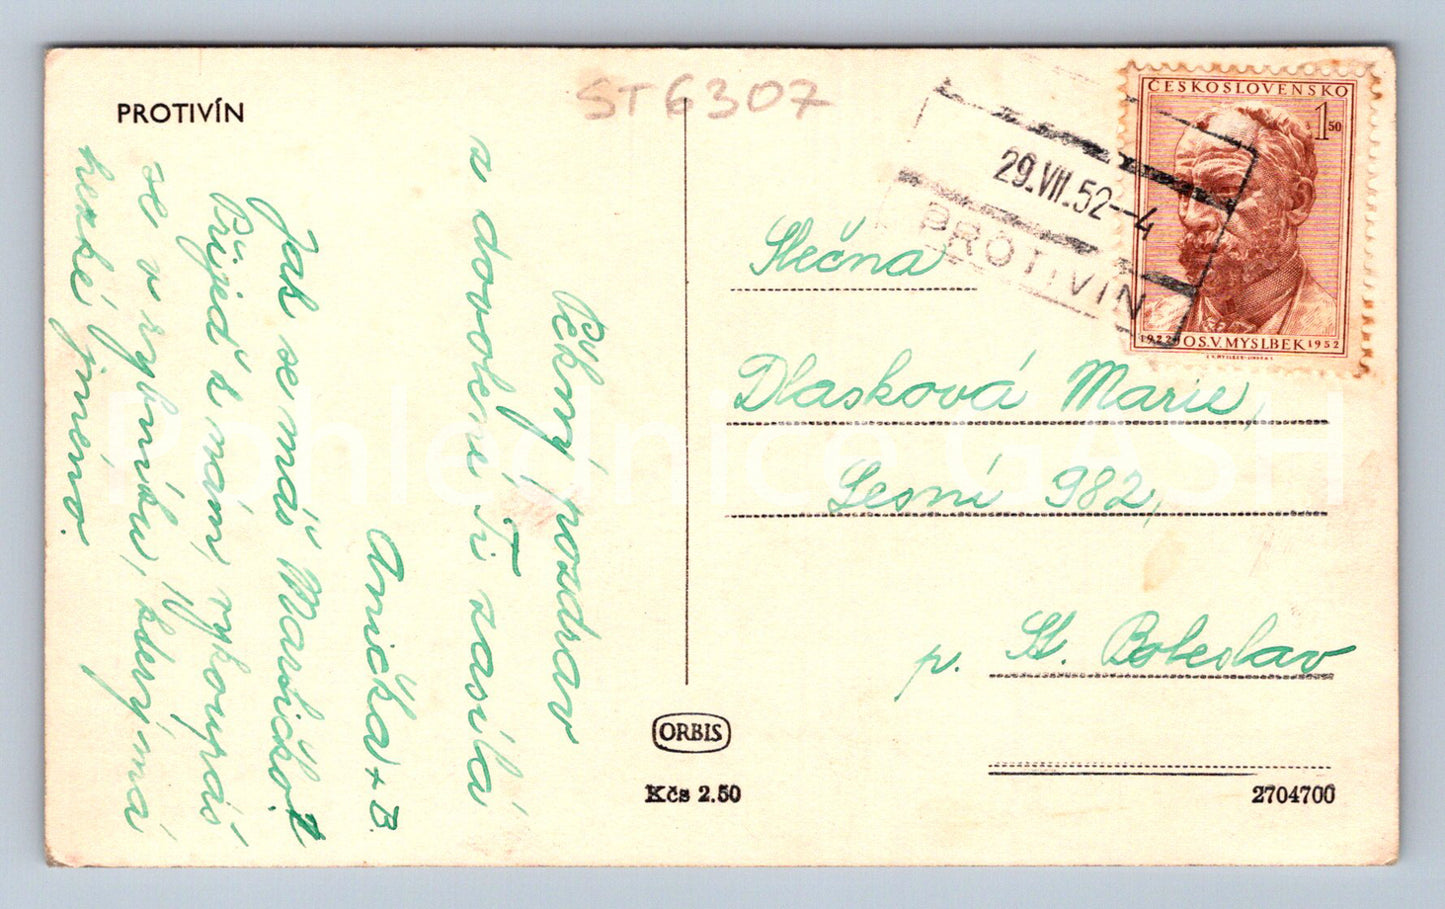 PROTIVÍN
ST6307
Pěkný pozdrav
z dovolené Ti zasílá
Anička + B.
Jak se máš Maruško?
Přijeď k nám, vykoupáš
se v rybníku, který má
hezké jméno.
ČESKOSLOVENSKO
1 50
1922 JOS.V.MYSLBEK 1952
29.VII.52--4
PROTIVÍN
Slečna
Dlasková Marie,
Lesní 982,
p. St. Boleslav
ORBIS
Kčs 2.50
2704700
Pohlednice GASH